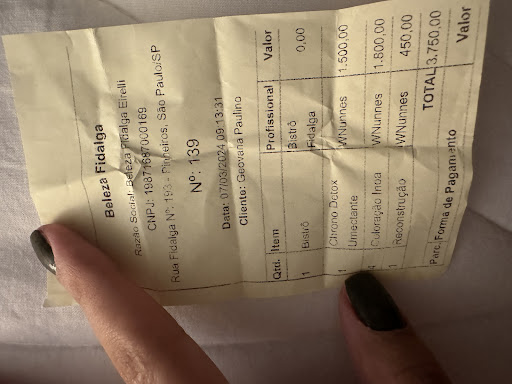 Beleza Fidalga
Razão Social: Beleza Fidalga Eirelli
CNPJ: 19871687000169
Rua Fidalga Nº: 193 - Pinheiros, São Paulo/SP
Nº: 139
Data: 07/03/2024 09:13:31
Cliente: Geovana Paulino
Qtd. Item Profissional Valor
1 Bistrô Bistrô Fidalga 0,00
1 Chrono Detox Umectante WNunnes 1.500,00
Coloração Inoa WNunnes 1.800,00
1 Reconstrução WNunnes 450,00
TOTAL 3.750,00
Parc. Forma de Pagamento Valor